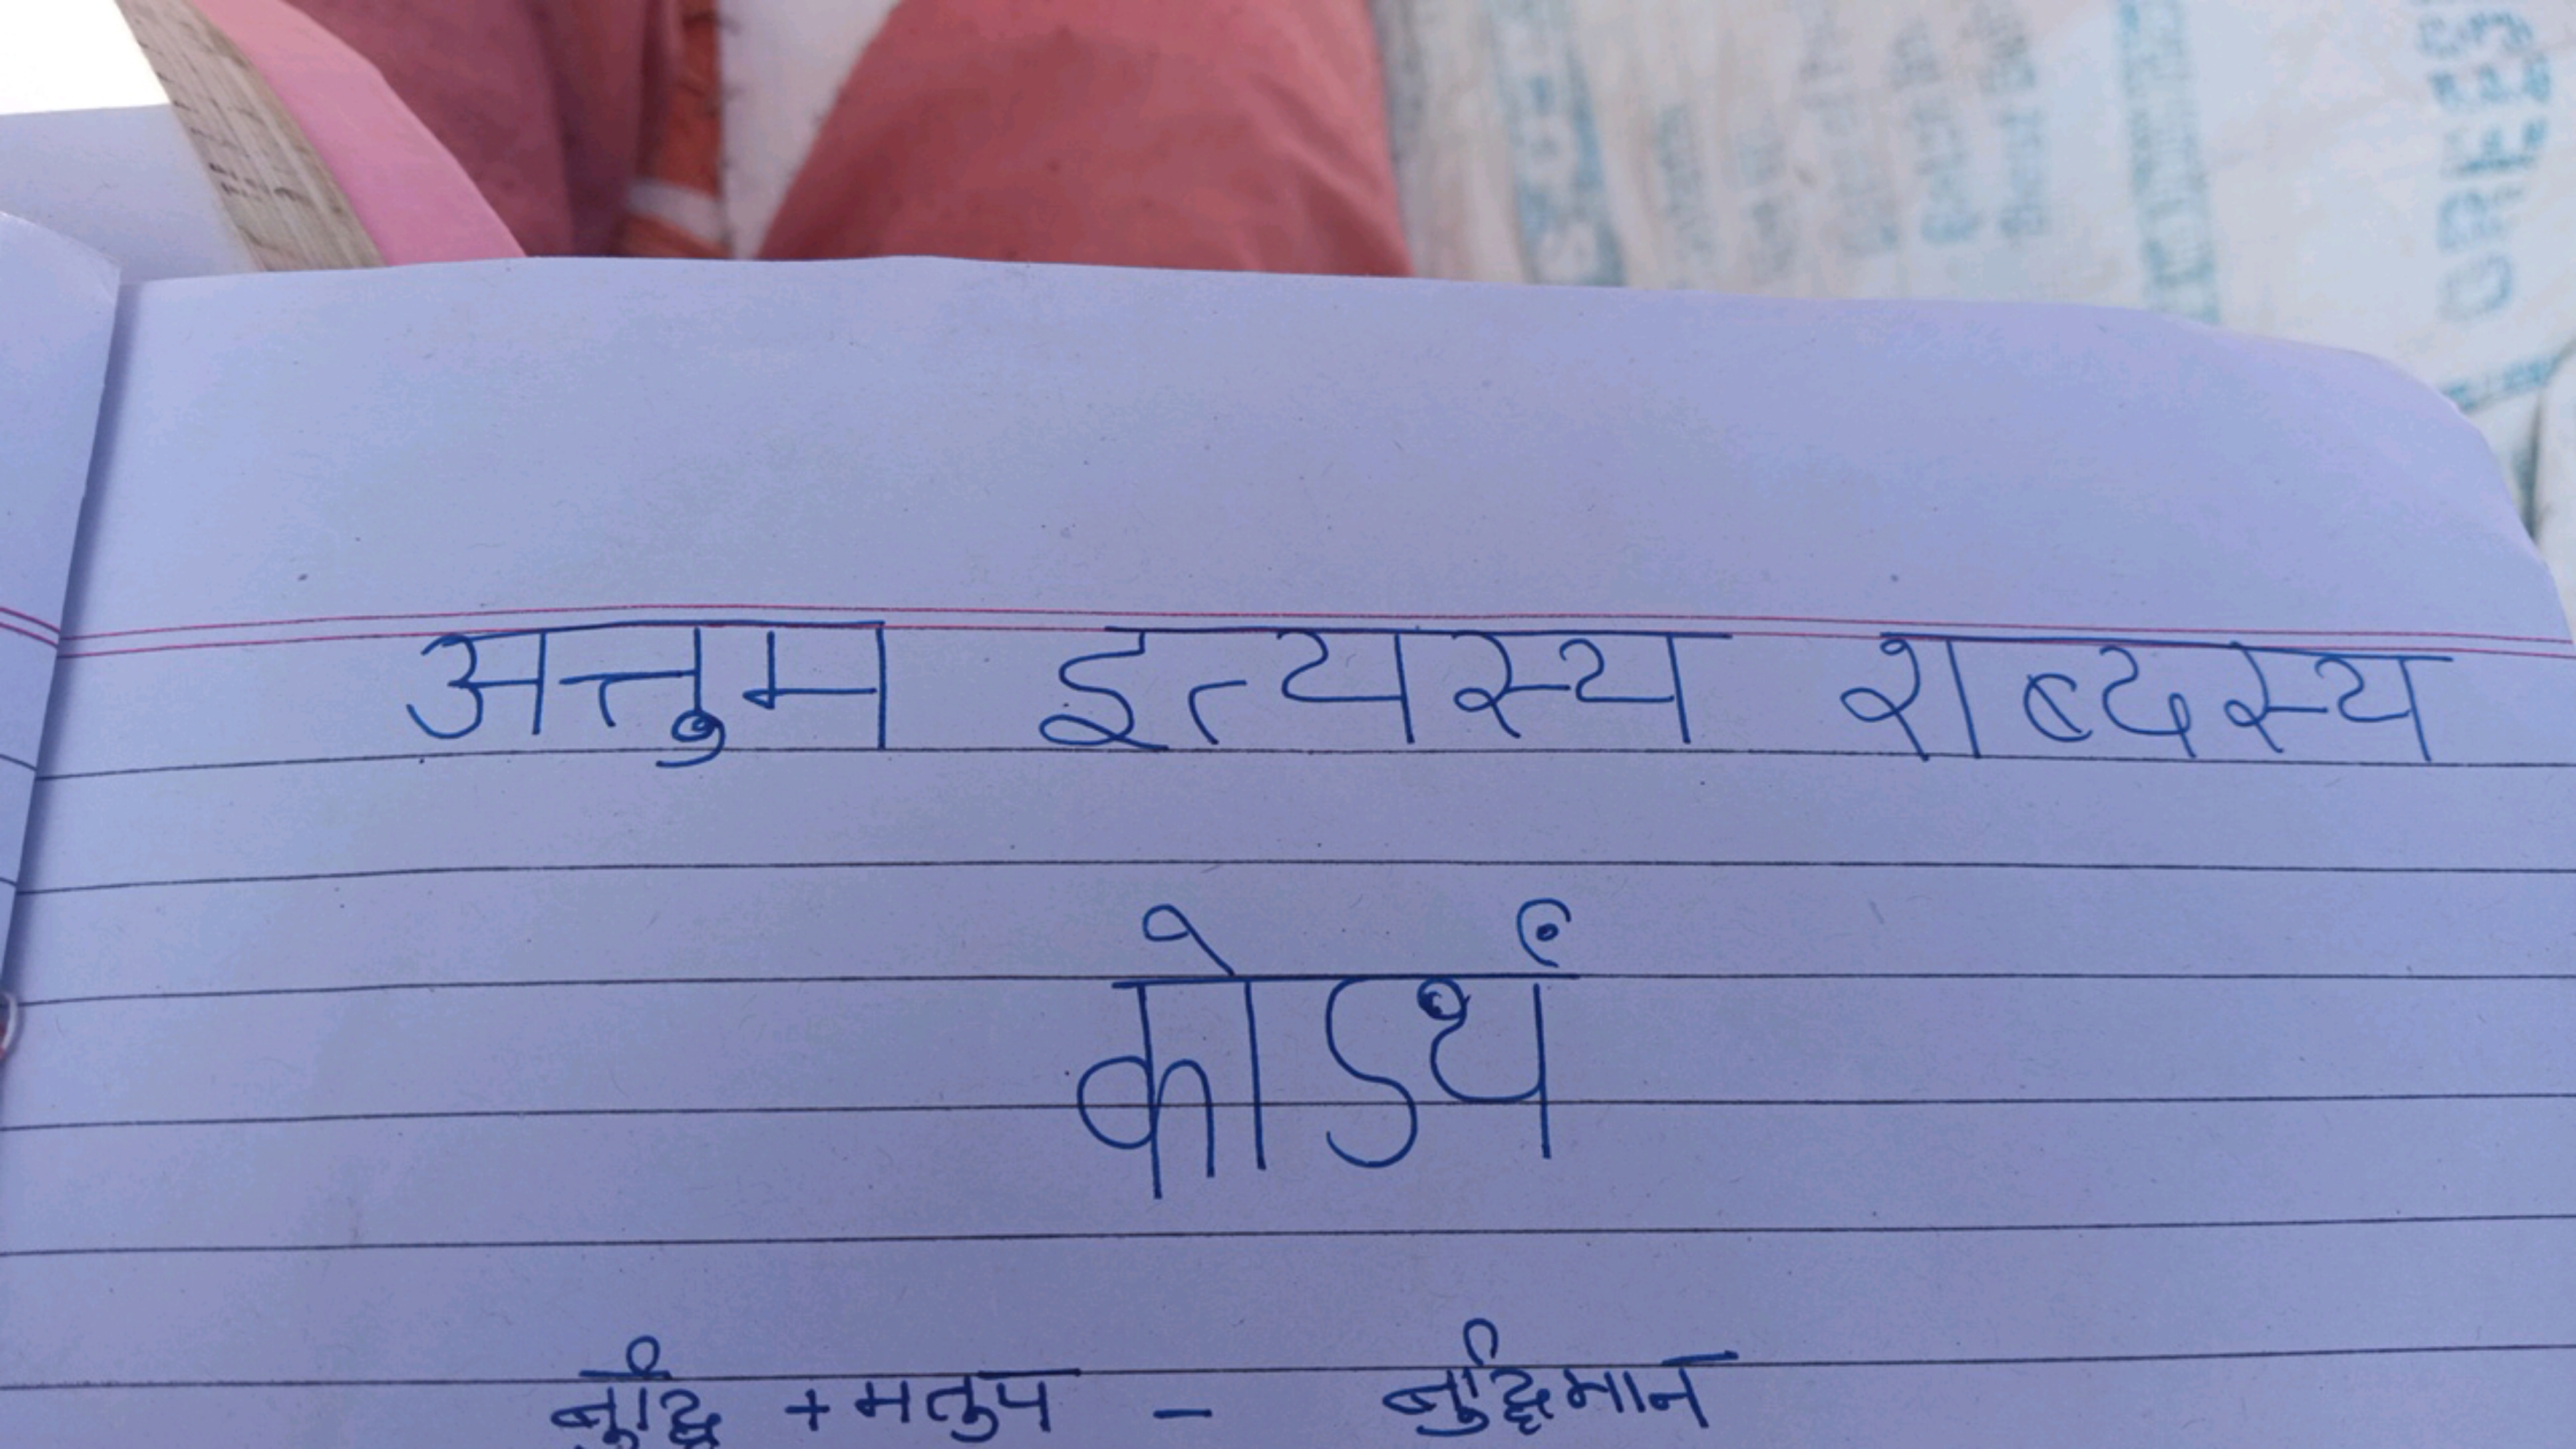 अत्तुम इत्यस्य शब्दस्य
कोऽर्थं
बुद्धि + मतुप - बुद्धिमान